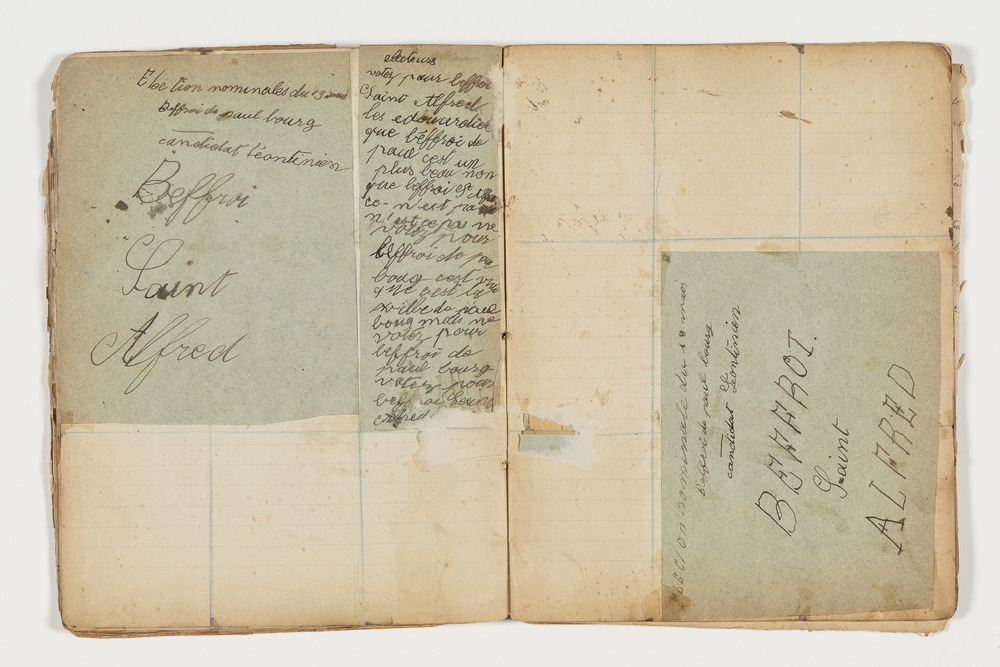 Election nominales du 19 mai
Beffroi de paul bourg
candidat Léontinien
Beffroi
Saint
Alfred
electeurs
votez pour beffroi
Saint Alfred
les edouardien
que béffroi de
paul c'est un
plus beau non
que beffroi St
ce n'est pas
n'est ce pas ne
votez pour
beffroi de pau
boug c'est vrai
que c'est la
ville de paul
boug mais ne
votez pour
beffroi de
paul bourg
votez pour
beffroi Saint
Alfred
nominale du 18 mais
Beffroi de paul bourg
candidat Léontinien
BEFFROI.
Saint
ALFRED